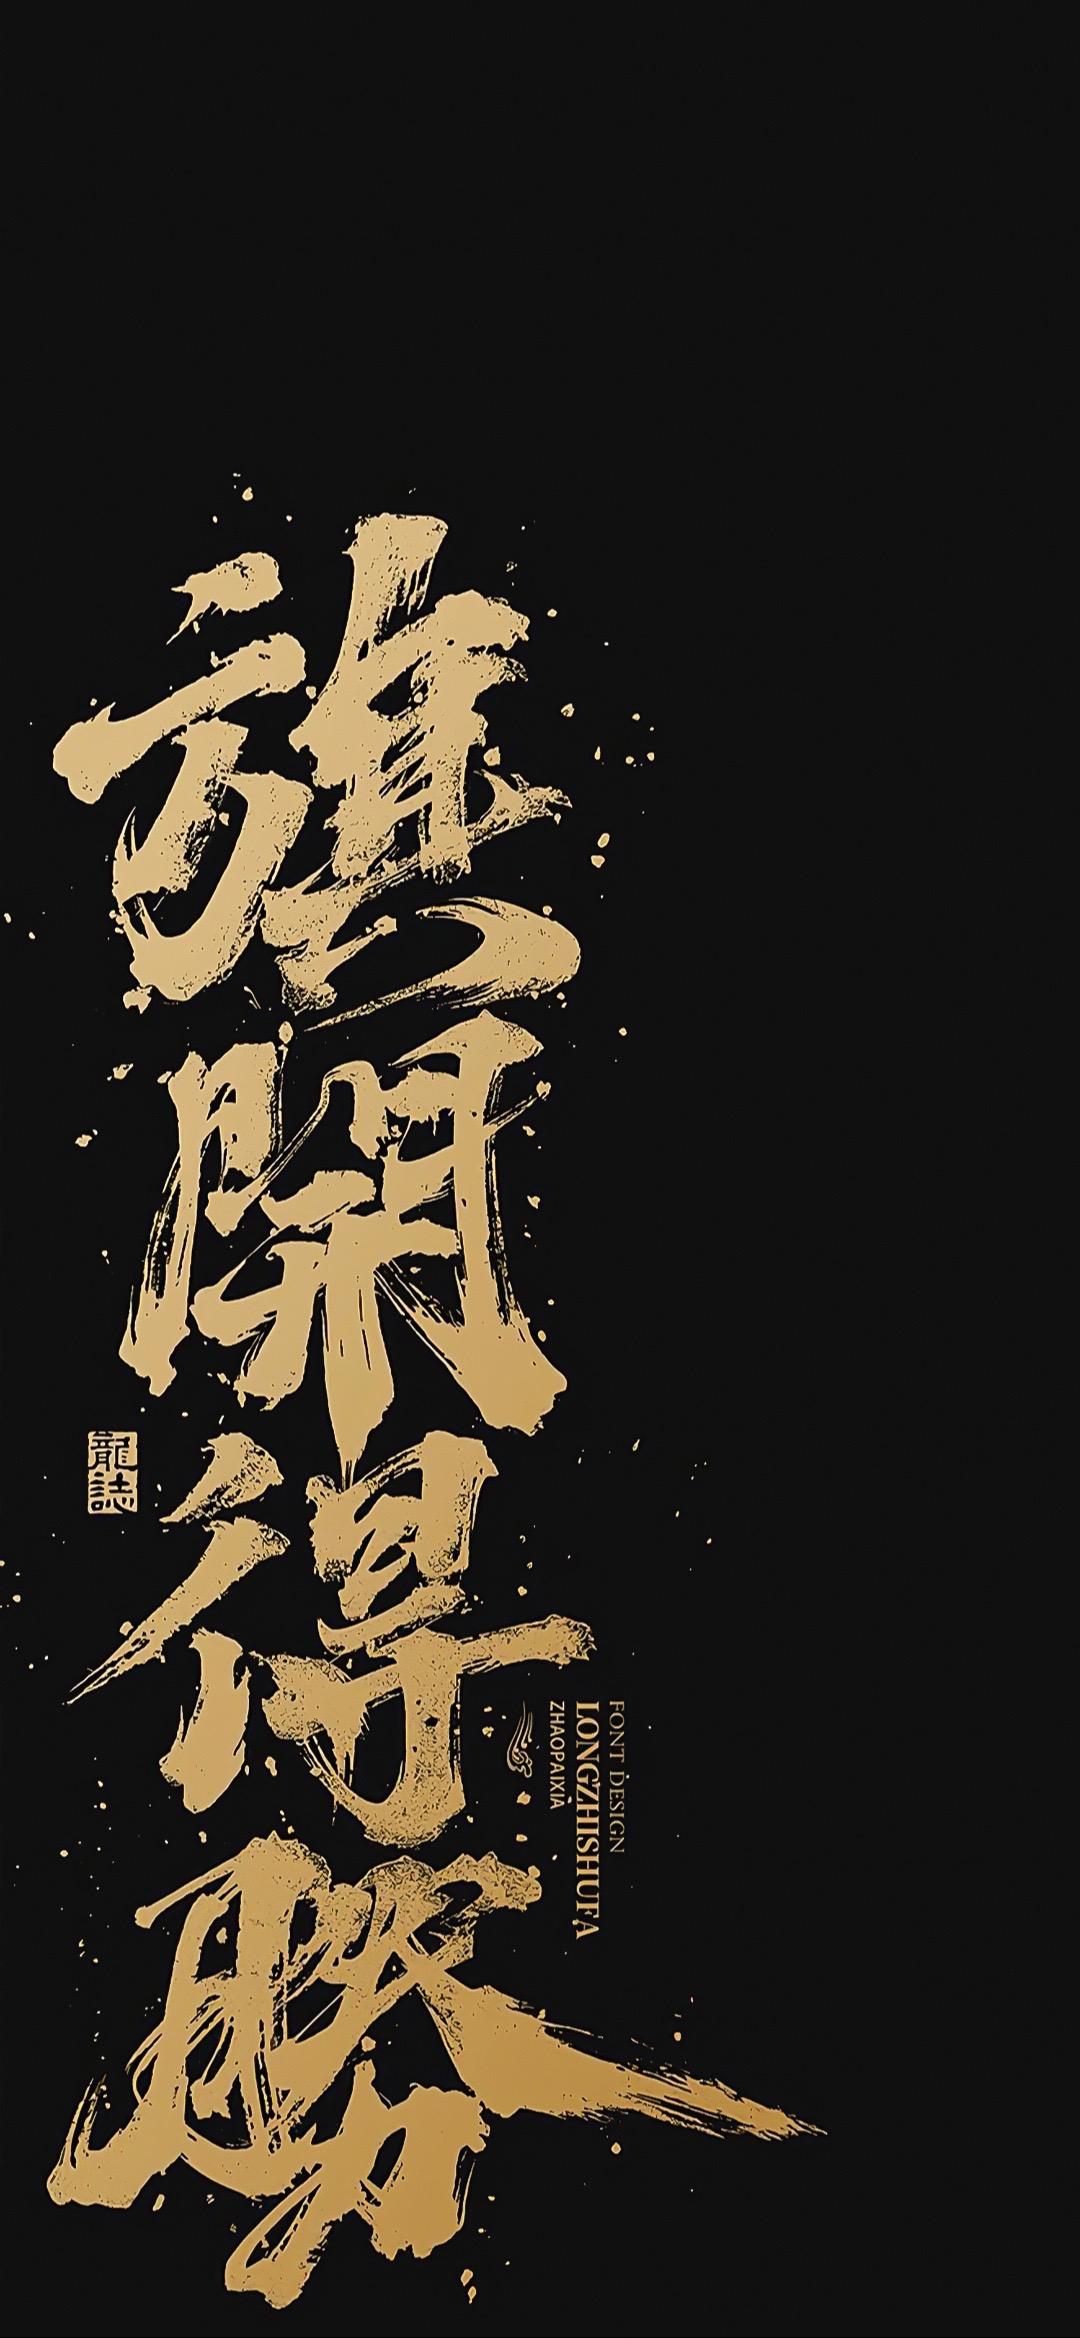 旗開得勝
龍誌
FONT DESIGN
LONGZHISHUFA
ZHAOPAIXIA